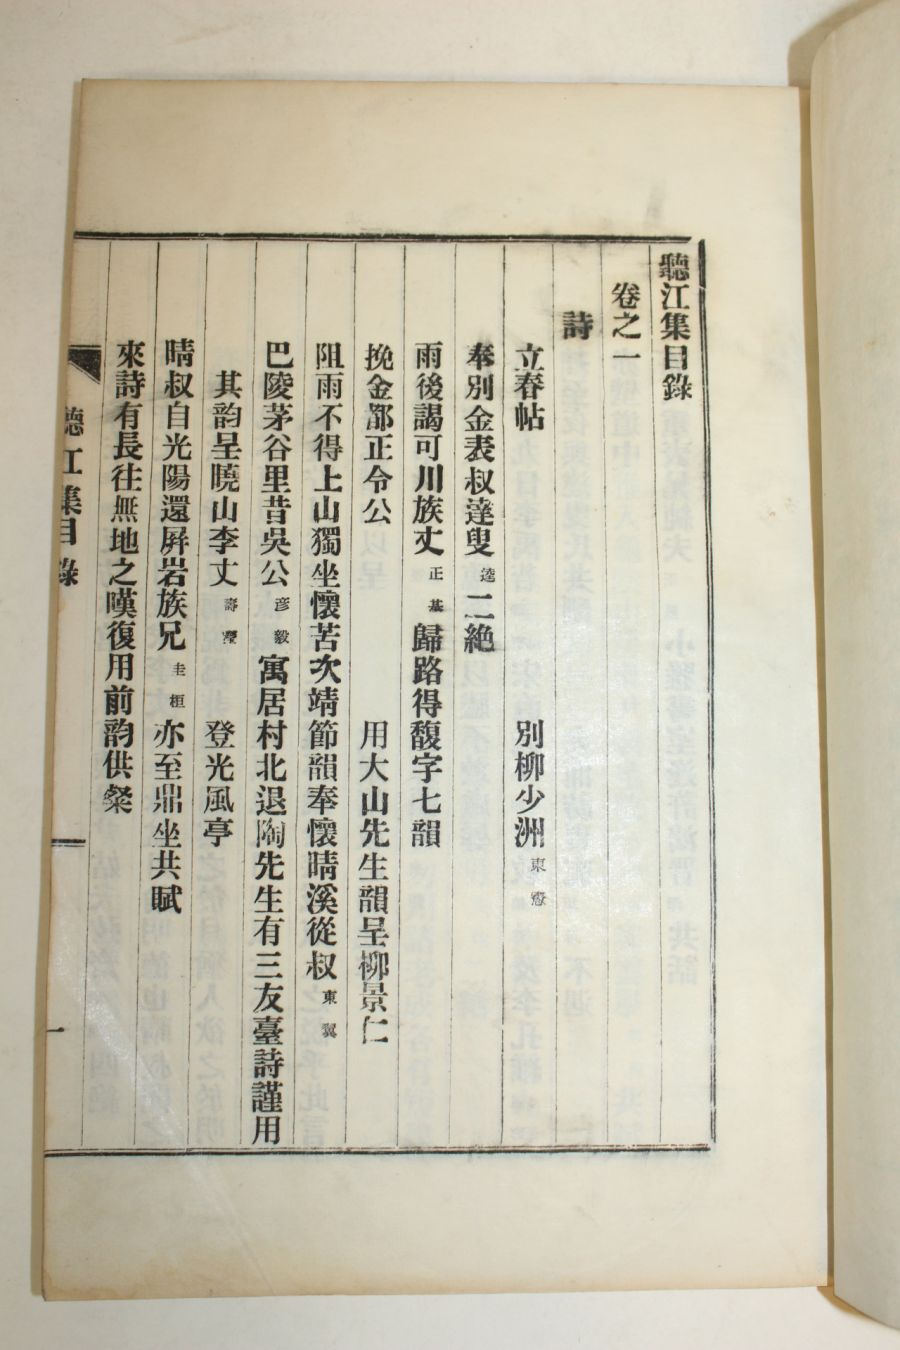 聽江集目錄
卷之一
詩
立春帖 別柳少洲東
奉別金表叔達叟逵二絶
雨後謁可川族丈正基歸路得馥字七韻
挽金都正令公 用大山先生韻呈柳景仁
阻雨不得上山獨坐懷苦次靖節韻奉懷晴溪從叔東翼
巴陵茅谷里昔吳公彦毅寓居村北退陶先生有三友臺詩謹用
其韵呈曉山李丈壽瀅 登光風亭
晴叔自光陽還屛岩族兄圭桓亦至鼎坐共賦
來詩有長往無地之嘆復用前韵供粲
聽江集目錄
一